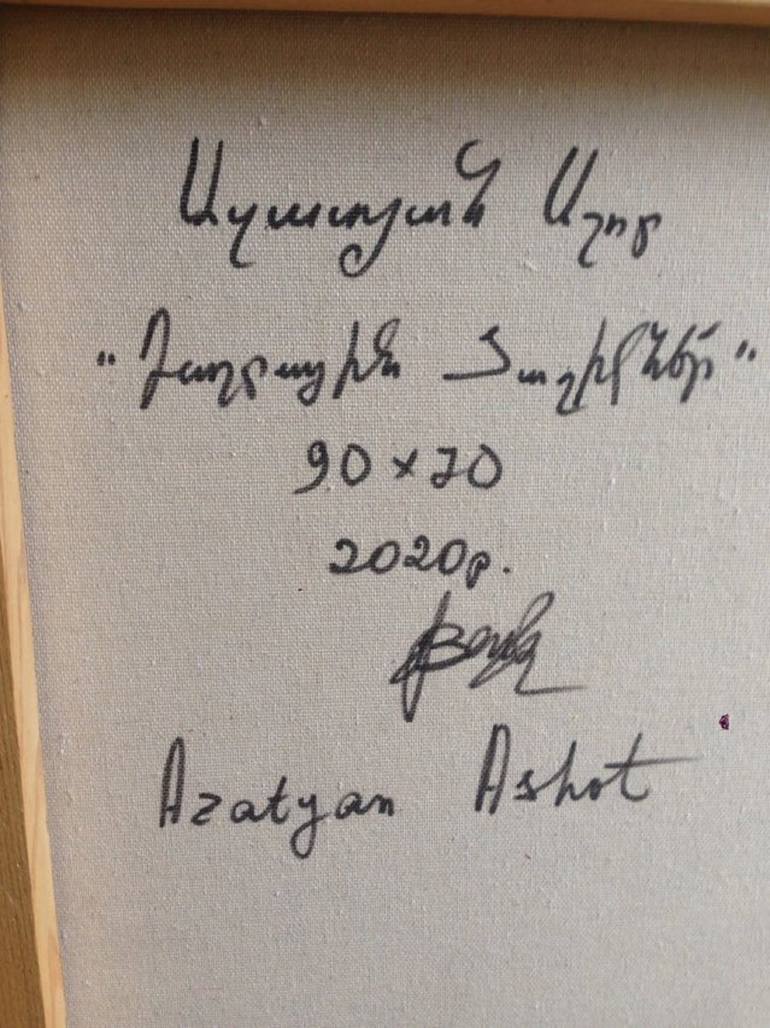 Ազատյան Աշոտ
"Դաշտային Ծաղիկներ"
90x70
2020թ.
Azatyan Ashot